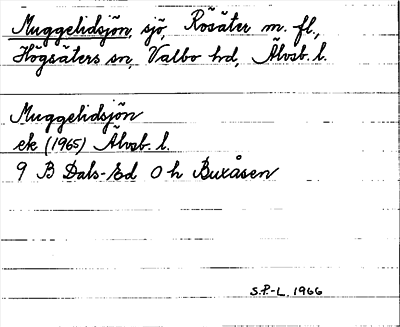 Muggelidsjön, sjö, Rösäter m. fl.,
Högsäters sn, Valbo hd, Älvsb. l.
Muggelidsjön
ek (1965) Älvsb. l.
9 B Dals-Ed O h Buxåsen
S.P.-L. 1966